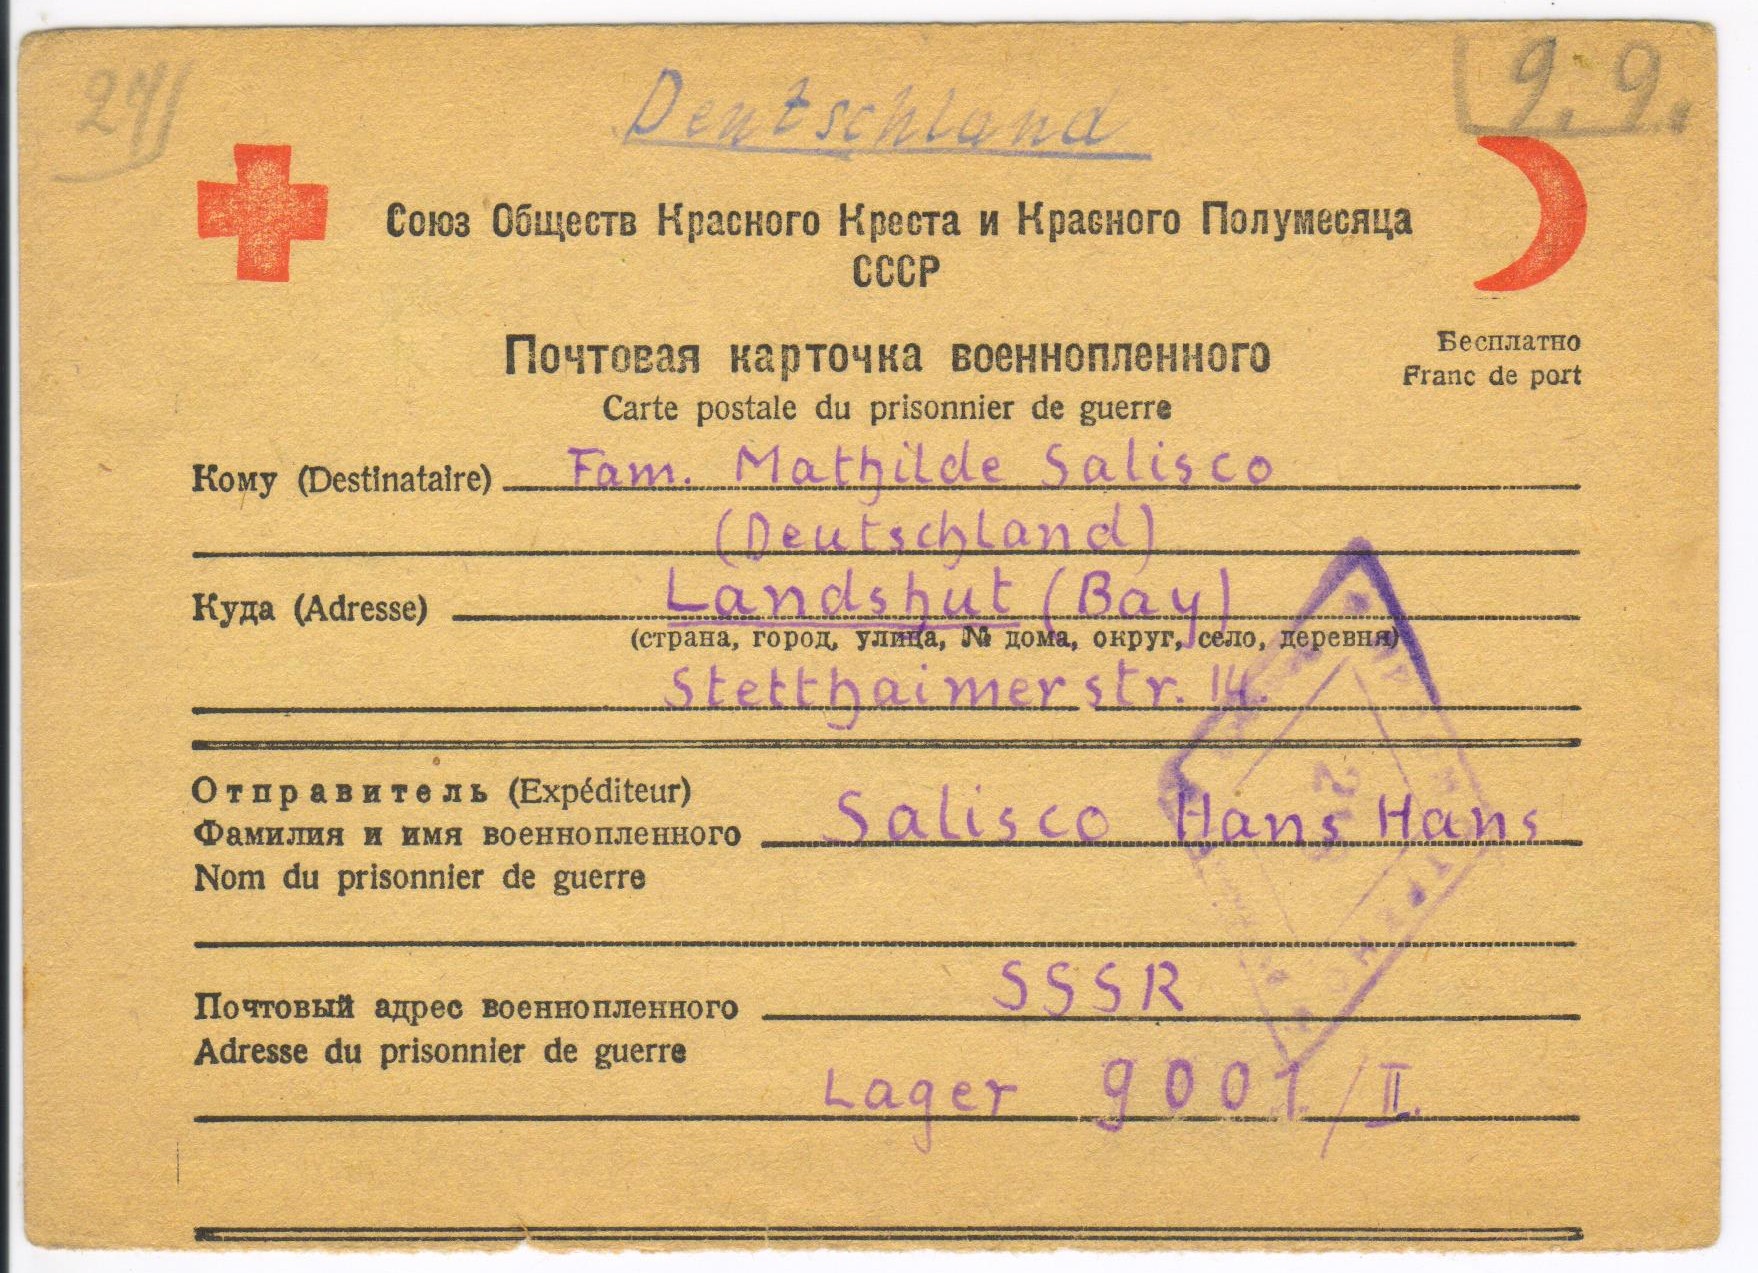 27/
Deutschland
9.9.
Союз Обществ Красного Креста и Красного Полумесяца
СССР
Почтовая карточка военнопленного
Бесплатно
Carte postale du prisonnier de guerre
Franc de port
Кому (Destinataire) Fam. Mathilde Salisco
(Deutschland)
Куда (Adresse) Landshut (Bay)
(страна, город, улица, № дома, округ, село, деревня)
Stetthaimerstr. 14.
Отправитель (Expéditeur)
Фамилия и имя военнопленного Salisco Hans Hans
Nom du prisonnier de guerre
Почтовый адрес военнопленного SSSR
Adresse du prisonnier de guerre
Lager 9001/II.